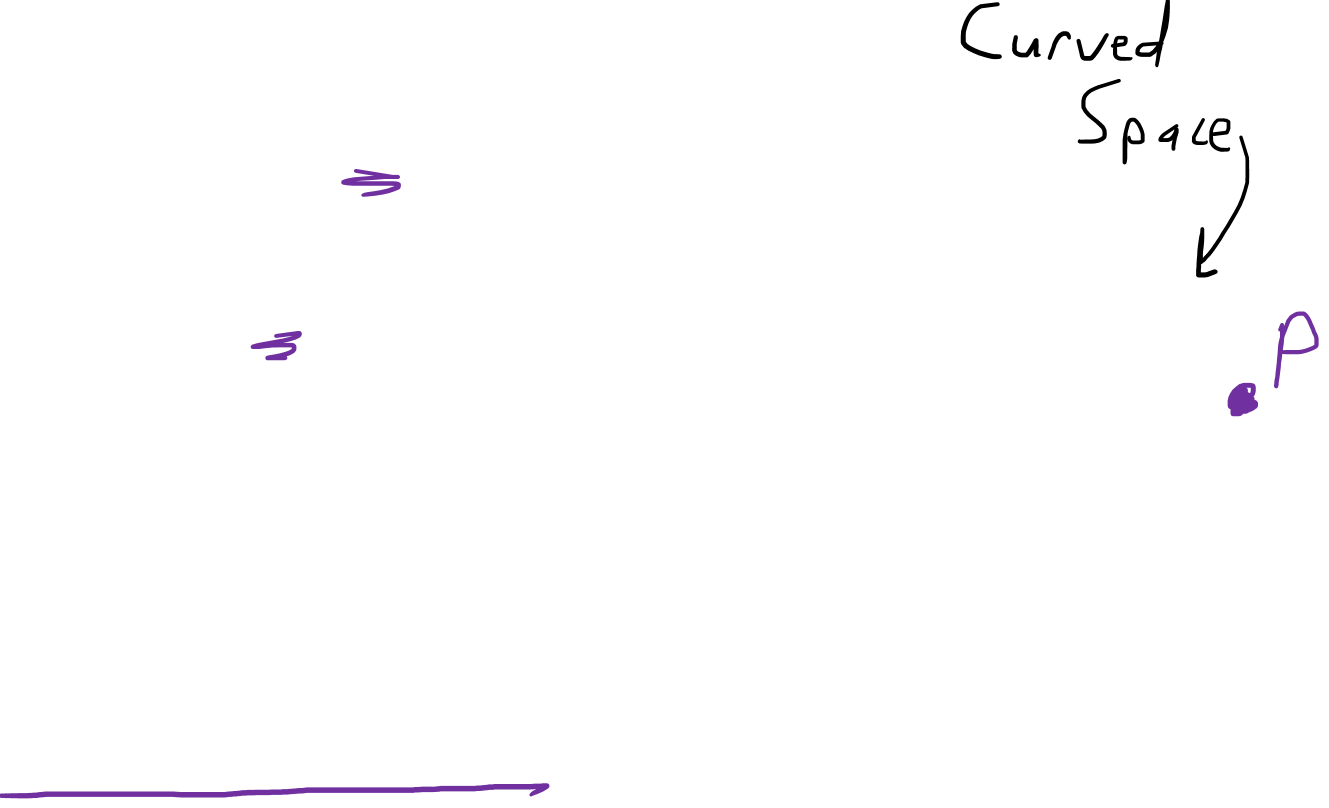 Curved
Space
P